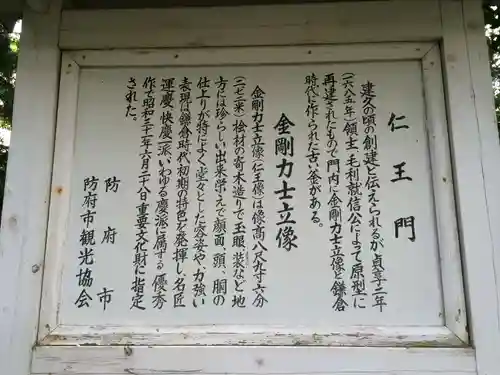 仁王門
建久の頃の創建と伝えられるが貞享二年
(一六八五年)領主、毛利就信公によって原型に
再建されたもので門内に金剛力士立像と鎌倉
時代に作られた古い釜がある。
金剛力士立像
金剛力士立像(仁王像)は像高八尺九寸六分
(二・七二米)桧材の寄木造りで玉眼、装など地
方には珍らしい出来栄えで顔面、頭、胴の
仕上りが特によく堂々とした容姿や、力強い
表現は鎌倉時代初期の特色を発揮し、名匠
運慶、快慶一派いわゆる慶派に属する優秀
作で昭和三十一年六月二十八日重要文化財に指定
された。
防府市
防府市観光協会